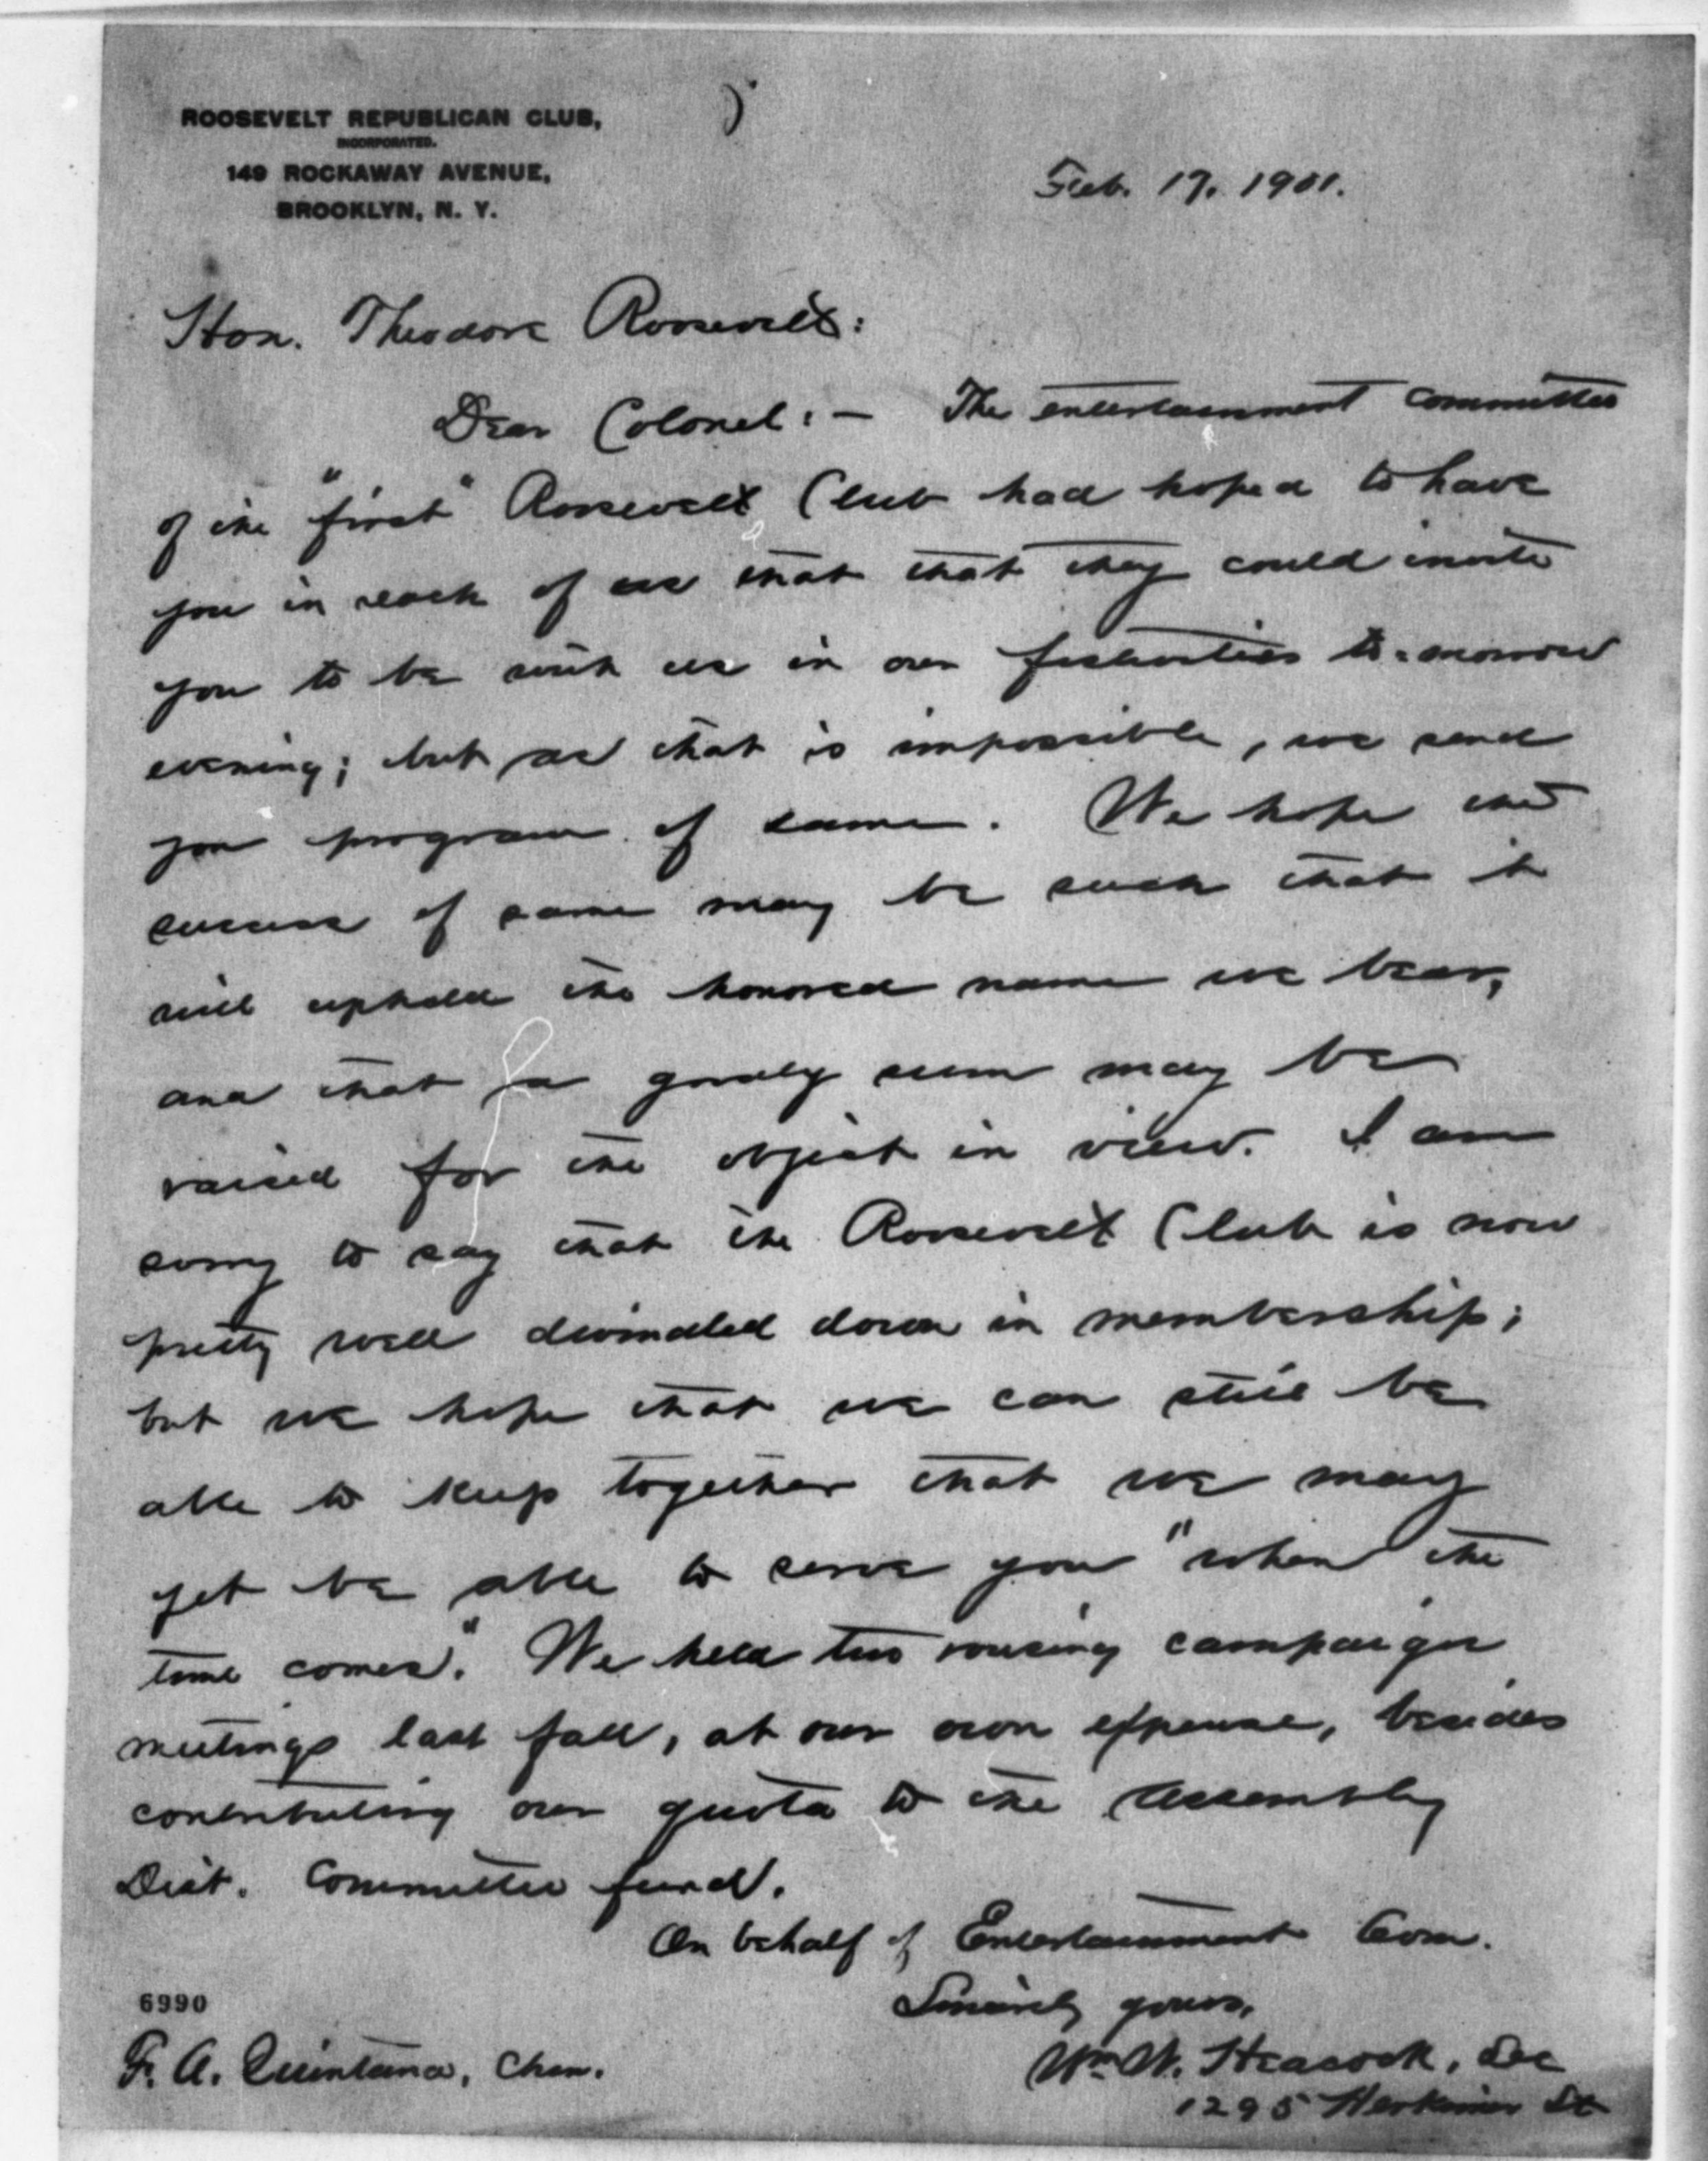 ROOSEVELT REPUBLICAN CLUB,
INCORPORATED.
149 ROCKAWAY AVENUE,
BROOKLYN, N. Y.
Feb. 17, 1901.
Hon. Theodore Roosevelt:
Dear Colonel:— The entertainment committee
of the "first" Roosevelt Club had hoped to have
you in reach of us that that they could invite
you to be with us in our festivities to-morrow
evening; but as that is impossible, we send
you program of same. We hope the
success of same may be such that it
will uphold the honored name we bear,
and that a goodly sum may be
raised for the object in view. I am
sorry to say that the Roosevelt Club is now
pretty well dwindled down in membership;
but we hope that we can still be
able to keep together that we may
yet be able to serve you "when the
time comes". We held two rousing campaign
meetings last fall, at our own expense, besides
contributing our quota to the Assembly
Dist. Committee fund.
On behalf of Entertainment Com.
Sincerely yours,
Wm. W. Heacock, Sec
1295 Herkimer St
6990
F. A. Quintana, Chm.